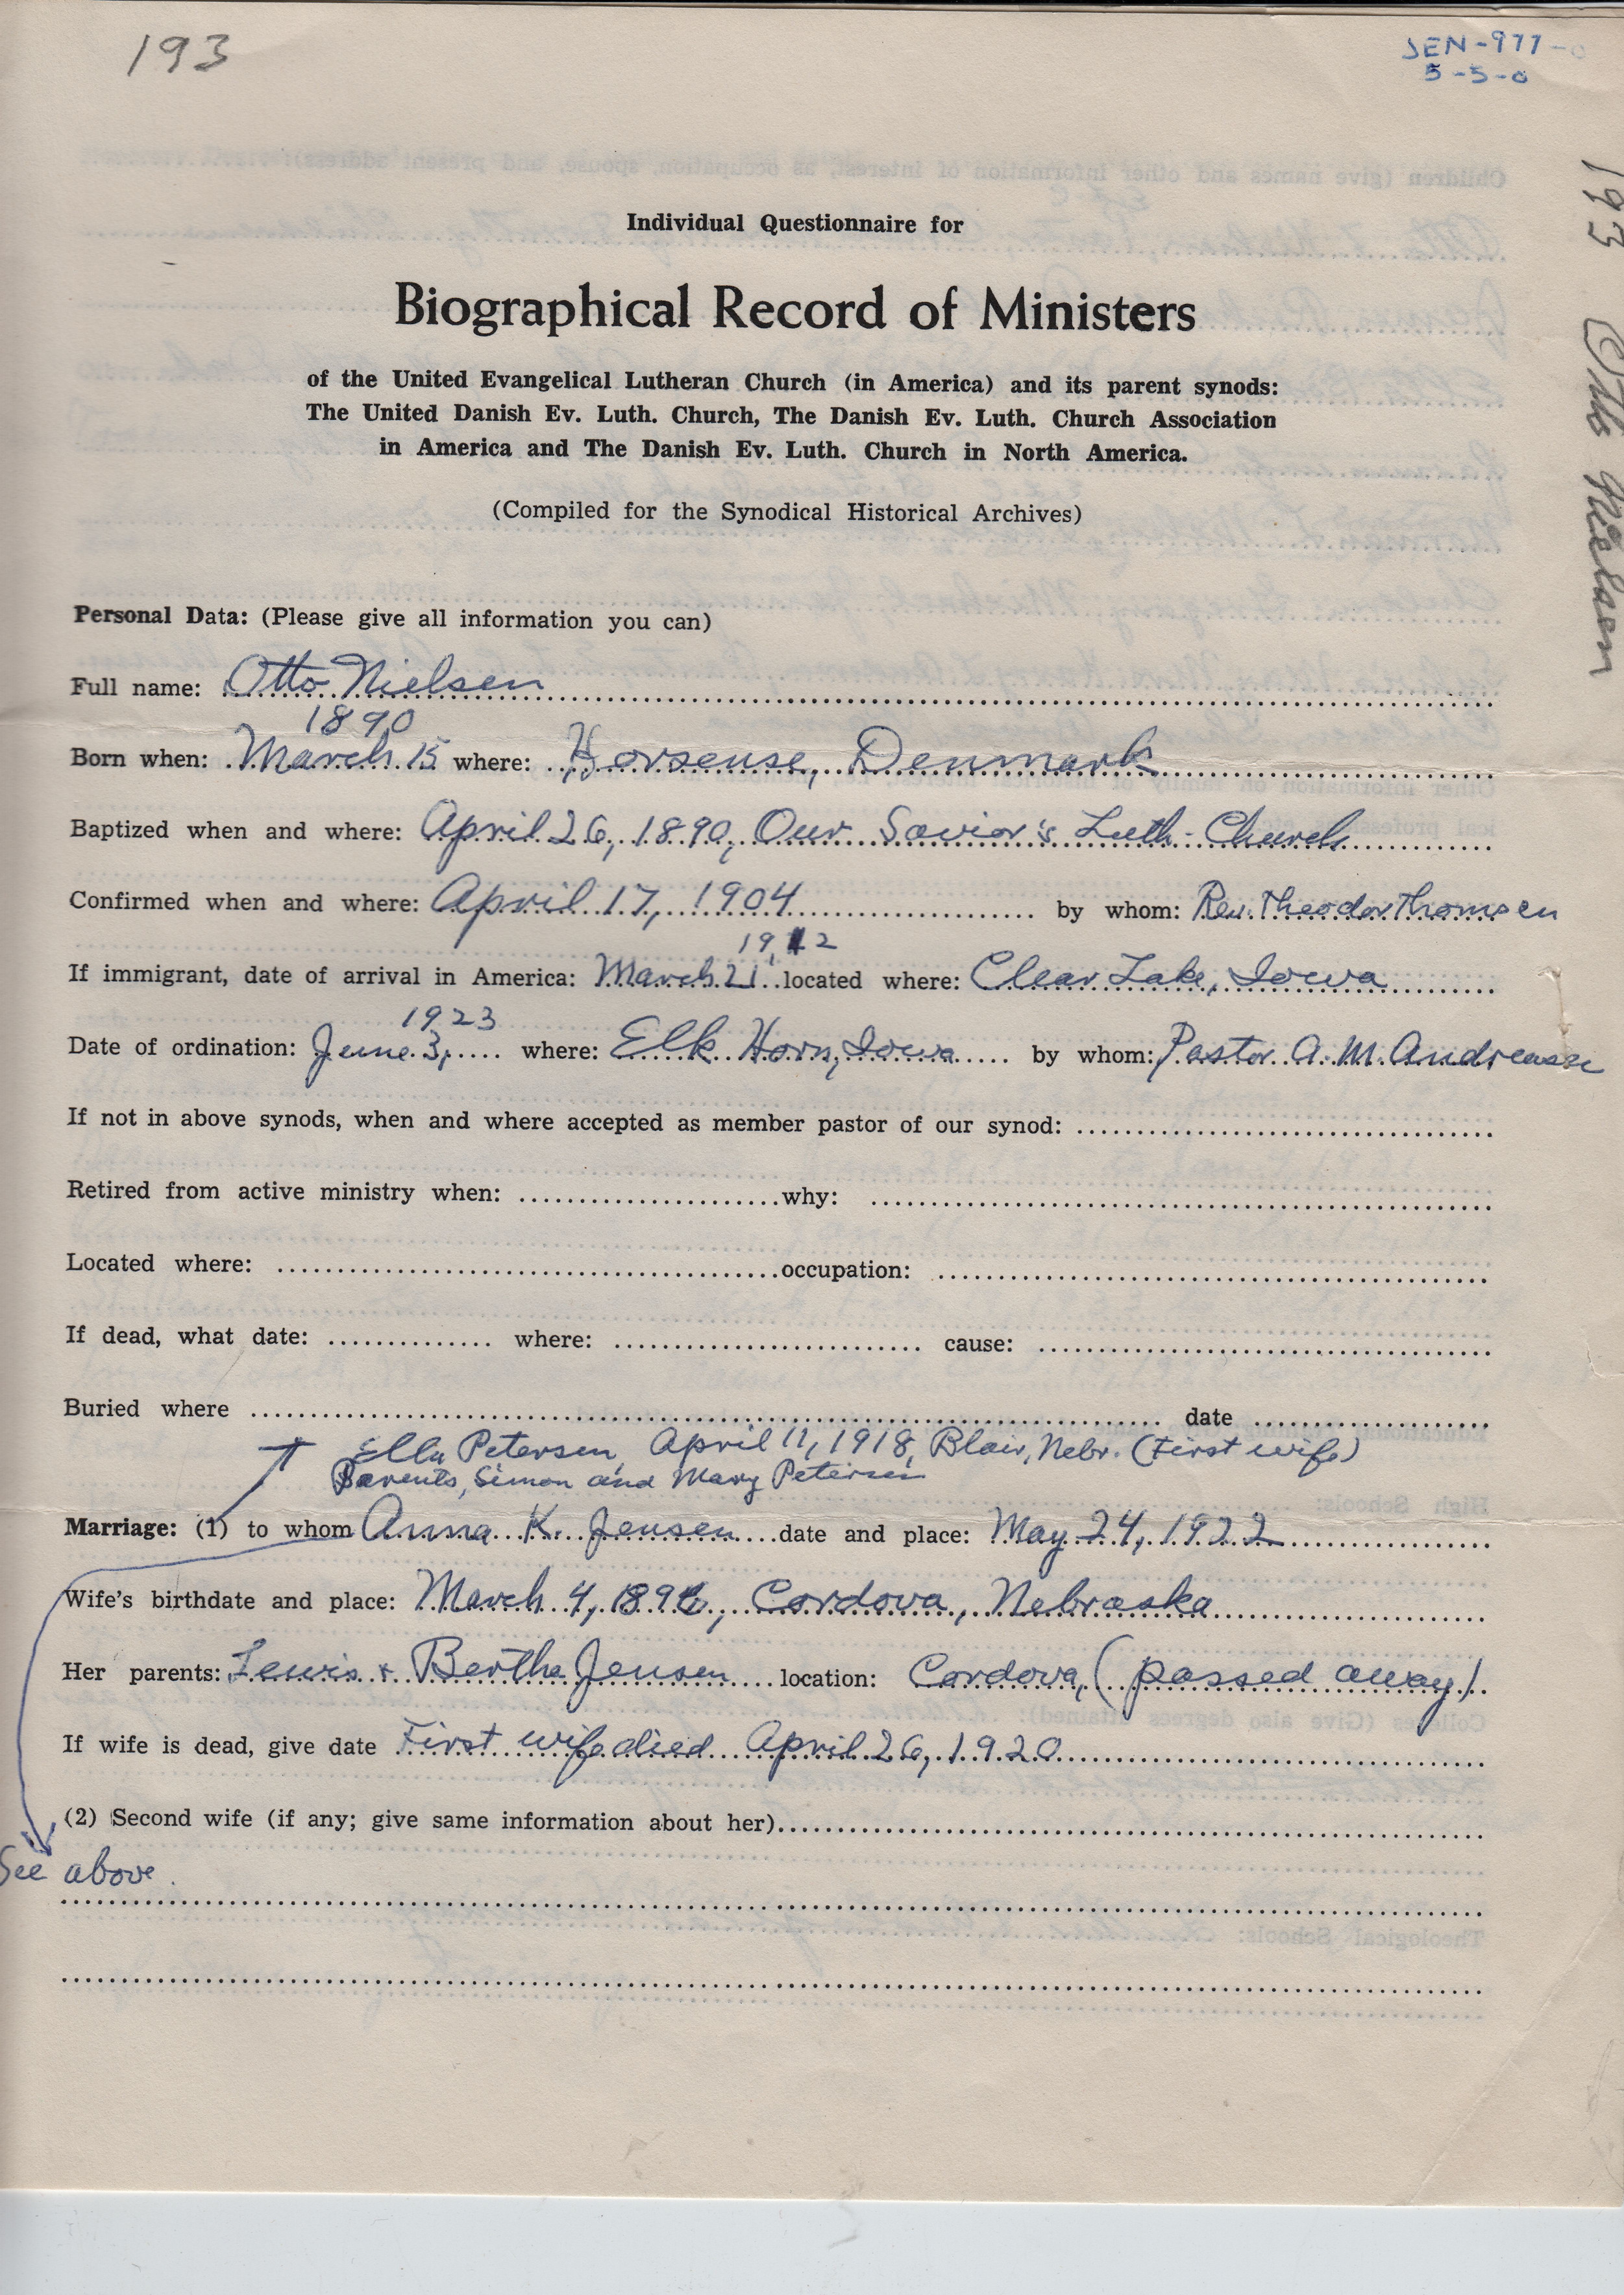 193
JEN-977-0
5-5-0
193 Otto Nielsen
Individual Questionnaire for
Biographical Record of Ministers
of the United Evangelical Lutheran Church (in America) and its parent synods:
The United Danish Ev. Luth. Church, The Danish Ev. Luth. Church Association
in America and The Danish Ev. Luth. Church in North America.
(Compiled for the Synodical Historical Archives)
Personal Data: (Please give all information you can)
Full name: Otto Nielsen
1890
Born when: March 15 where: Horsense, Denmark
Baptized when and where: April 26, 1890, Our Savior's Luth. Church
Confirmed when and where: April 17, 1904 by whom: Rev. Theodor Thomsen
1912
If immigrant, date of arrival in America: March 21, located where: Clear Lake, Iowa
1923
Date of ordination: June 3, where: Elk Horn, Iowa by whom: Pastor A. M. Andreasen
If not in above synods, when and where accepted as member pastor of our synod:
Retired from active ministry when: why:
Located where: occupation:
If dead, what date: where: cause:
Buried where date
Ella Petersen, April 11, 1918, Blair, Nebr. (First wife)
Parents, Simon and Mary Petersen
Marriage: (1) to whom Anna K. Jensen date and place: May 24, 1922
Wife's birthdate and place: March 4, 1896, Cordova, Nebraska
Her parents: Lewis & Bertha Jensen location: Cordova, (passed away)
If wife is dead, give date First wife died April 26, 1920
(2) Second wife (if any; give same information about her)
See above.